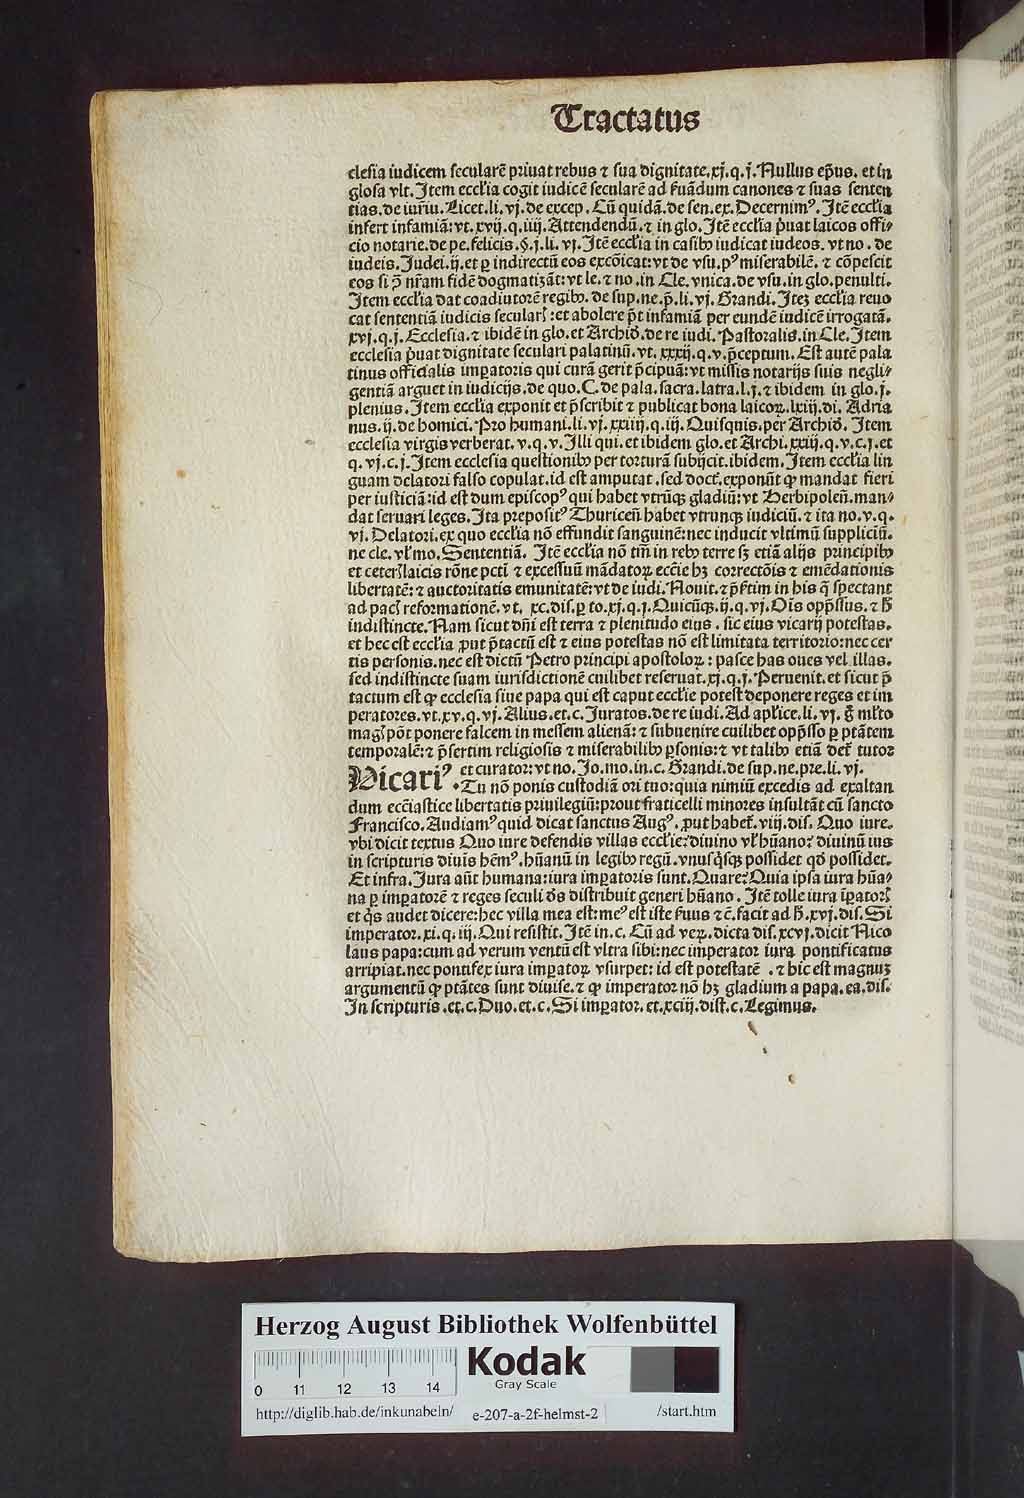 Tractatus
clesia iudicem secularē priuat rebus ⁊ sua dignitate.xj.q.j.Nullus ep̄us. et in
glosa vlt. Item eccl'ia cogit iudicē secularē ad ẜuādum canones ⁊ suas senten
tias.de iur̄iu.Licet.li.vj.de excep. Cū quidā.de sen.ex.Decernimꝰ. Itē eccl'ia
infert infamiā:vt.xvij.q.iiij.Attendendū.⁊ in glo.Itē eccl'ia p̄uat laicos offi-
cio notarie.de pe.felicis.§.j.li.vj.Itē eccl'ia in casibꝰ iudicat iudeos.vt no. de
iudeis.Iudei.ij.et ꝑ indirectū eos excōicat:vt de vsu.pꝰ miserabilē. ⁊ cōpescit
eos si ꝯ nr̄am fidē dogmatizāt:vt le.⁊ no.in Cle.vnica.de vsu.in glo.penulti.
Item eccl'ia dat coadiutorē regibꝰ.de sup.ne.p̄.li.vj. Grandi.Iteꝫ eccl'ia reuo
cat sententiā iudicis secularꝭ:et abolere p̄t infamiā per eundē iudicē irrogatā.
xvj.q.j.Ecclesia.⁊ ibidē in glo.et Archid̄.de re iudi.Pastoralis.in Cle.Item
ecclesia p̄uat dignitate seculari palatinū.vt.xxxij.q.v.p̄ceptum.Est autē pala
tinus officialis imꝑatoris qui curā gerit p̄cipuā:vt missis notarijs suis negli-
gentiā arguet in iudicijs.de quo.C.de pala.sacra.latra.l.j.⁊ ibidem in glo.j.
plenius.Item eccl'ia exponit et p̄scribit ⁊ publicat bona laicoꝝ.lxiij.di. Adria
nus.ij.de homici.Pro humani.li.vj.xxiiij.q.iij.Quisquis.per Archid̄. Item
ecclesia virgis verberat.v.q.v.Illi qui.et ibidem glo.et Archi.xxiij.q.v.c.j.et
q.vj.c.j.Item ecclesia questionibꝰ per torturā subijcit.ibidem.Item eccl'ia lin
guam delatori falso copulat.id est amputat.sed doct̄.exponūt ꝙ mandat fieri
per iusticiā:id est dum episcopꝰ qui habet vtrūqꝫ gladiū:vt Herbipoleñ.man-
dat seruari leges.Ita prepositꝰ Thuriceñ habet vtrunqꝫ iudiciū.⁊ ita no.v.q.
vj.Delatori.ex quo eccl'ia nō effundit sanguinē:nec inducit vltimū suppliciū.
ne cle.vl'mo.Sententiā. Itē eccl'ia nō tm̄ in rebꝰ terre sꝫ etiā alijs principibꝰ
et ceterꝭ laicis rōne pcti ⁊ excessuū mādatoꝝ ecc̄ie hꝫ correctōis ⁊ emēdationis
libertatē:⁊ auctoritatis emunitatē:vt de iudi.Nouit.⁊ p̄ẜtim in his q̄ spectant
ad pacꝭ reformationē.vt. xc.dis.ꝑ to.xj.q.j.Quicūqꝫ.ij.q.vj.Oīs opp̄ssus.⁊ h̄
indistincte.Nam sicut dn̄i est terra ⁊ plenitudo eius . sic eius vicarij potestas.
et hec est eccl'ia ꝓut p̄tactū est ⁊ eius potestas nō est limitata territorio:nec cer
tis personis.nec est dictū Petro principi apostoloꝝ : pasce has oues vel illas.
sed indistincte suam iurisdictionē cuilibet reseruat.xj.q.j.Peruenit.et sicut p̄
tactum est ꝙ ecclesia siue papa qui est caput eccl'ie potest deponere reges et im
peratores.vt.xv.q.vj.Alius.et.c.Iuratos.de re iudi.Ad apl'ice.li.vj. g̊ ml'to
magꝭ pōt ponere falcem in messem alienā:⁊ subuenire cuilibet opp̄sso ꝑ ptātem
temporalē:⁊ p̄sertim religiosis ⁊ miserabilibꝰ ꝑsonis:⁊ vt talibꝰ etiā det̄ tutor
et curator:vt no.Jo.mo.in.c.Grandi.de sup.ne.pre.li.vj.
Vicariꝰ.Tu nō ponis custodiā ori tuo:quia nimiū excedis ad exaltan
dum ecc̄iastice libertatis priuilegiū:prout fraticelli minores insultāt cū sancto
Francisco.Audiamꝰ quid dicat sanctus Augꝰ. ꝓut habet̄.viij.dis. Quo iure.
vbi dicit textus Quo iure defendis villas eccl'ie?diuino vl' hūano? diuinū ius
in scripturis diuīs hēmꝰ.hūanū in legibꝰ regū.vnusq̄sqꝫ possidet qd̄ possidet.
Et infra.Iura aūt humana:iura imꝑatoris sunt.Quare?Quia ipsa iura hūa-
na ꝑ imꝑatorē ⁊ reges seculi de̊s distribuit generi hūano . Itē tolle iura īꝑatorꝭ
et q̄s audet dicere:hec villa mea est:meꝰ est iste ẜuus ⁊ c̄.facit ad h̄.xvj.dis.Si
imperator.xi.q.iij.Qui resistit.Itē in.c. Cū ad veꝝ.dicta dis.xcvj.dicit Nico
laus papa:cum ad verum ventū est vltra sibi:nec imperator iura pontificatus
arripiat.nec pontifex iura imꝑatoꝝ vsurpet: id est potestatē . ⁊ hic est magnuꝫ
argumentū ꝙ ptātes sunt diuise.⁊ ꝙ imperator nō hꝫ gladium a papa.ea.dis.
In scripturis.et.c.Duo.et.c.Si imꝑator.et.xciij.dist.c.Legimus.
Herzog August Bibliothek Wolfenbüttel
0 11 12 13 14
Kodak
Gray Scale
http://diglib.hab.de/inkunabeln/ e-207-a-2f-helmst-2 /start.htm